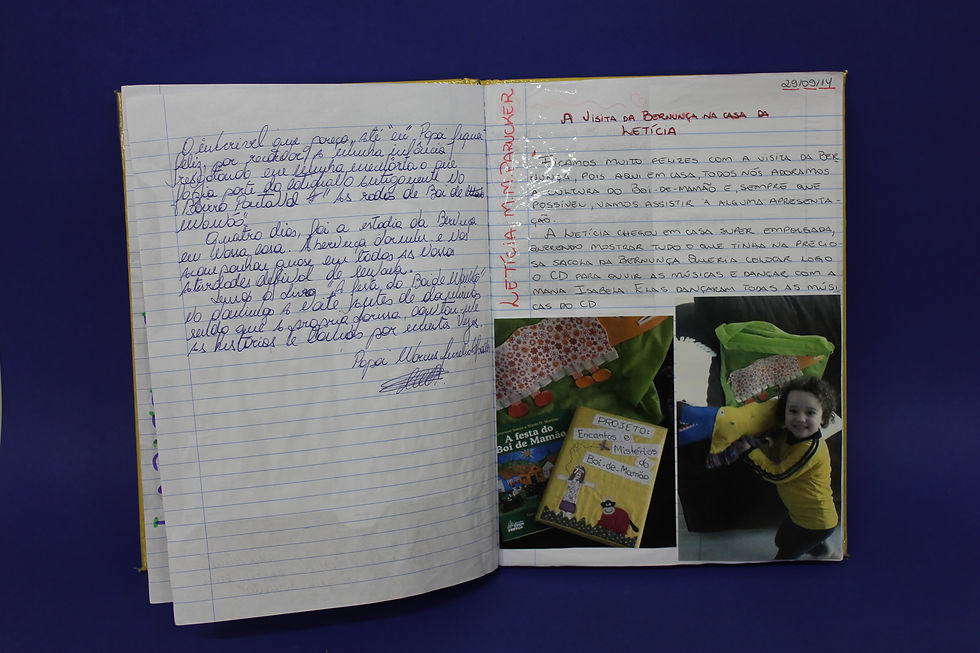 O incrível que pareça, até "eu" Papai fiquei
feliz, por recordar a minha infância
resgatando em minha memória o que
fazia parte do cotidiano antigamente no
Bairro Pantanal "As rodas de Boi de
Mamão"
Quatro dias, foi a estadia da Bernunça
em nossa casa. A bernunça dormiu e nos
acompanhou quase em todas as nossas
atividades
Lemos o Livro "A festa do Boi de Mamão"
no domingo a noite, antes de dormirmos
sendo que a própria Larissa
as histórias e
por muitas vezes.
Papai
29/09/14
LETÍCIA M.M. PARUCKER
A VISITA DA BERNUNÇA NA CASA DA
LETÍCIA
FICAMOS MUITO FELIZES COM A VISITA DA BER
NUNÇA, POIS AQUI EM CASA, TODOS NÓS ADORAMOS
A CULTURA DO BOI-DE-MAMÃO E, SEMPRE QUE
POSSÍVEL, VAMOS ASSISTIR À ALGUMA APRESENTA-
ÇÃO.
A LETÍCIA CHEGOU EM CASA SUPER EMPOLGADA,
QUERENDO MOSTRAR TUDO O QUE TINHA NA PRECIO-
SA SACOLA DA BERNUNÇA. QUERIA COLOCAR LOGO
O CD PARA OUVIR AS MÚSICAS E DANÇAR COM A
MANA ISABELA. ELAS DANÇARAM TODAS AS MÚSI
CAS DO CD
A festa do
Boi de Mamão
PROJETO:
Encantos e
Mistérios
do
Boi-de-Mamão